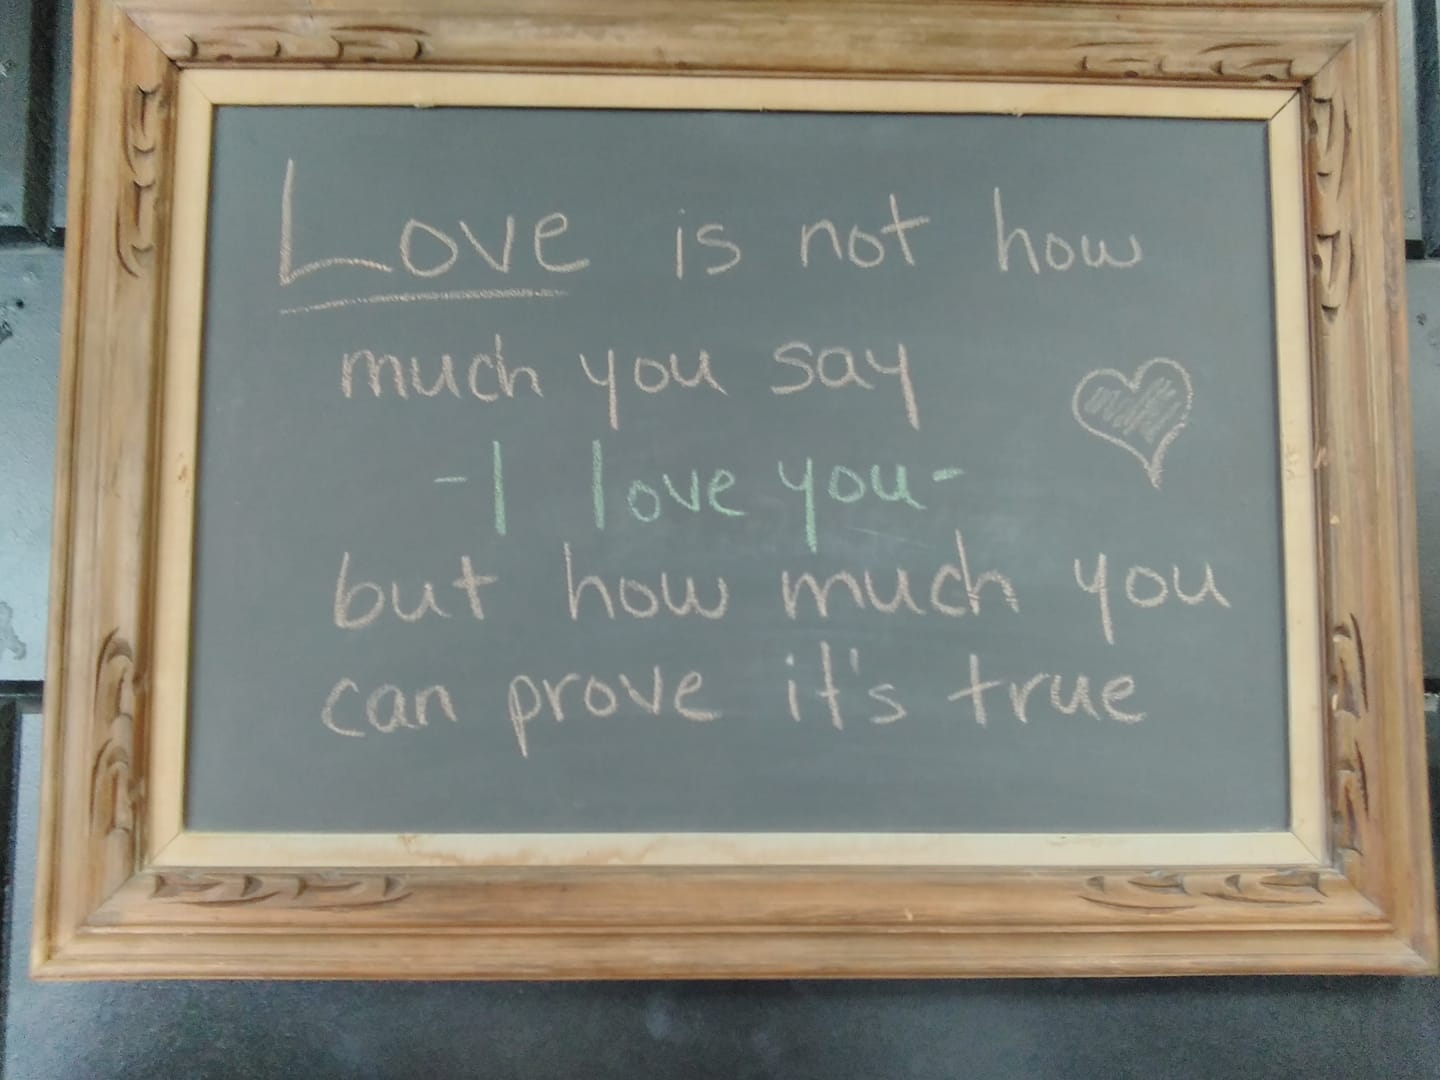 Love is not how
much you say
-I love you-
but how much you
can prove it's true